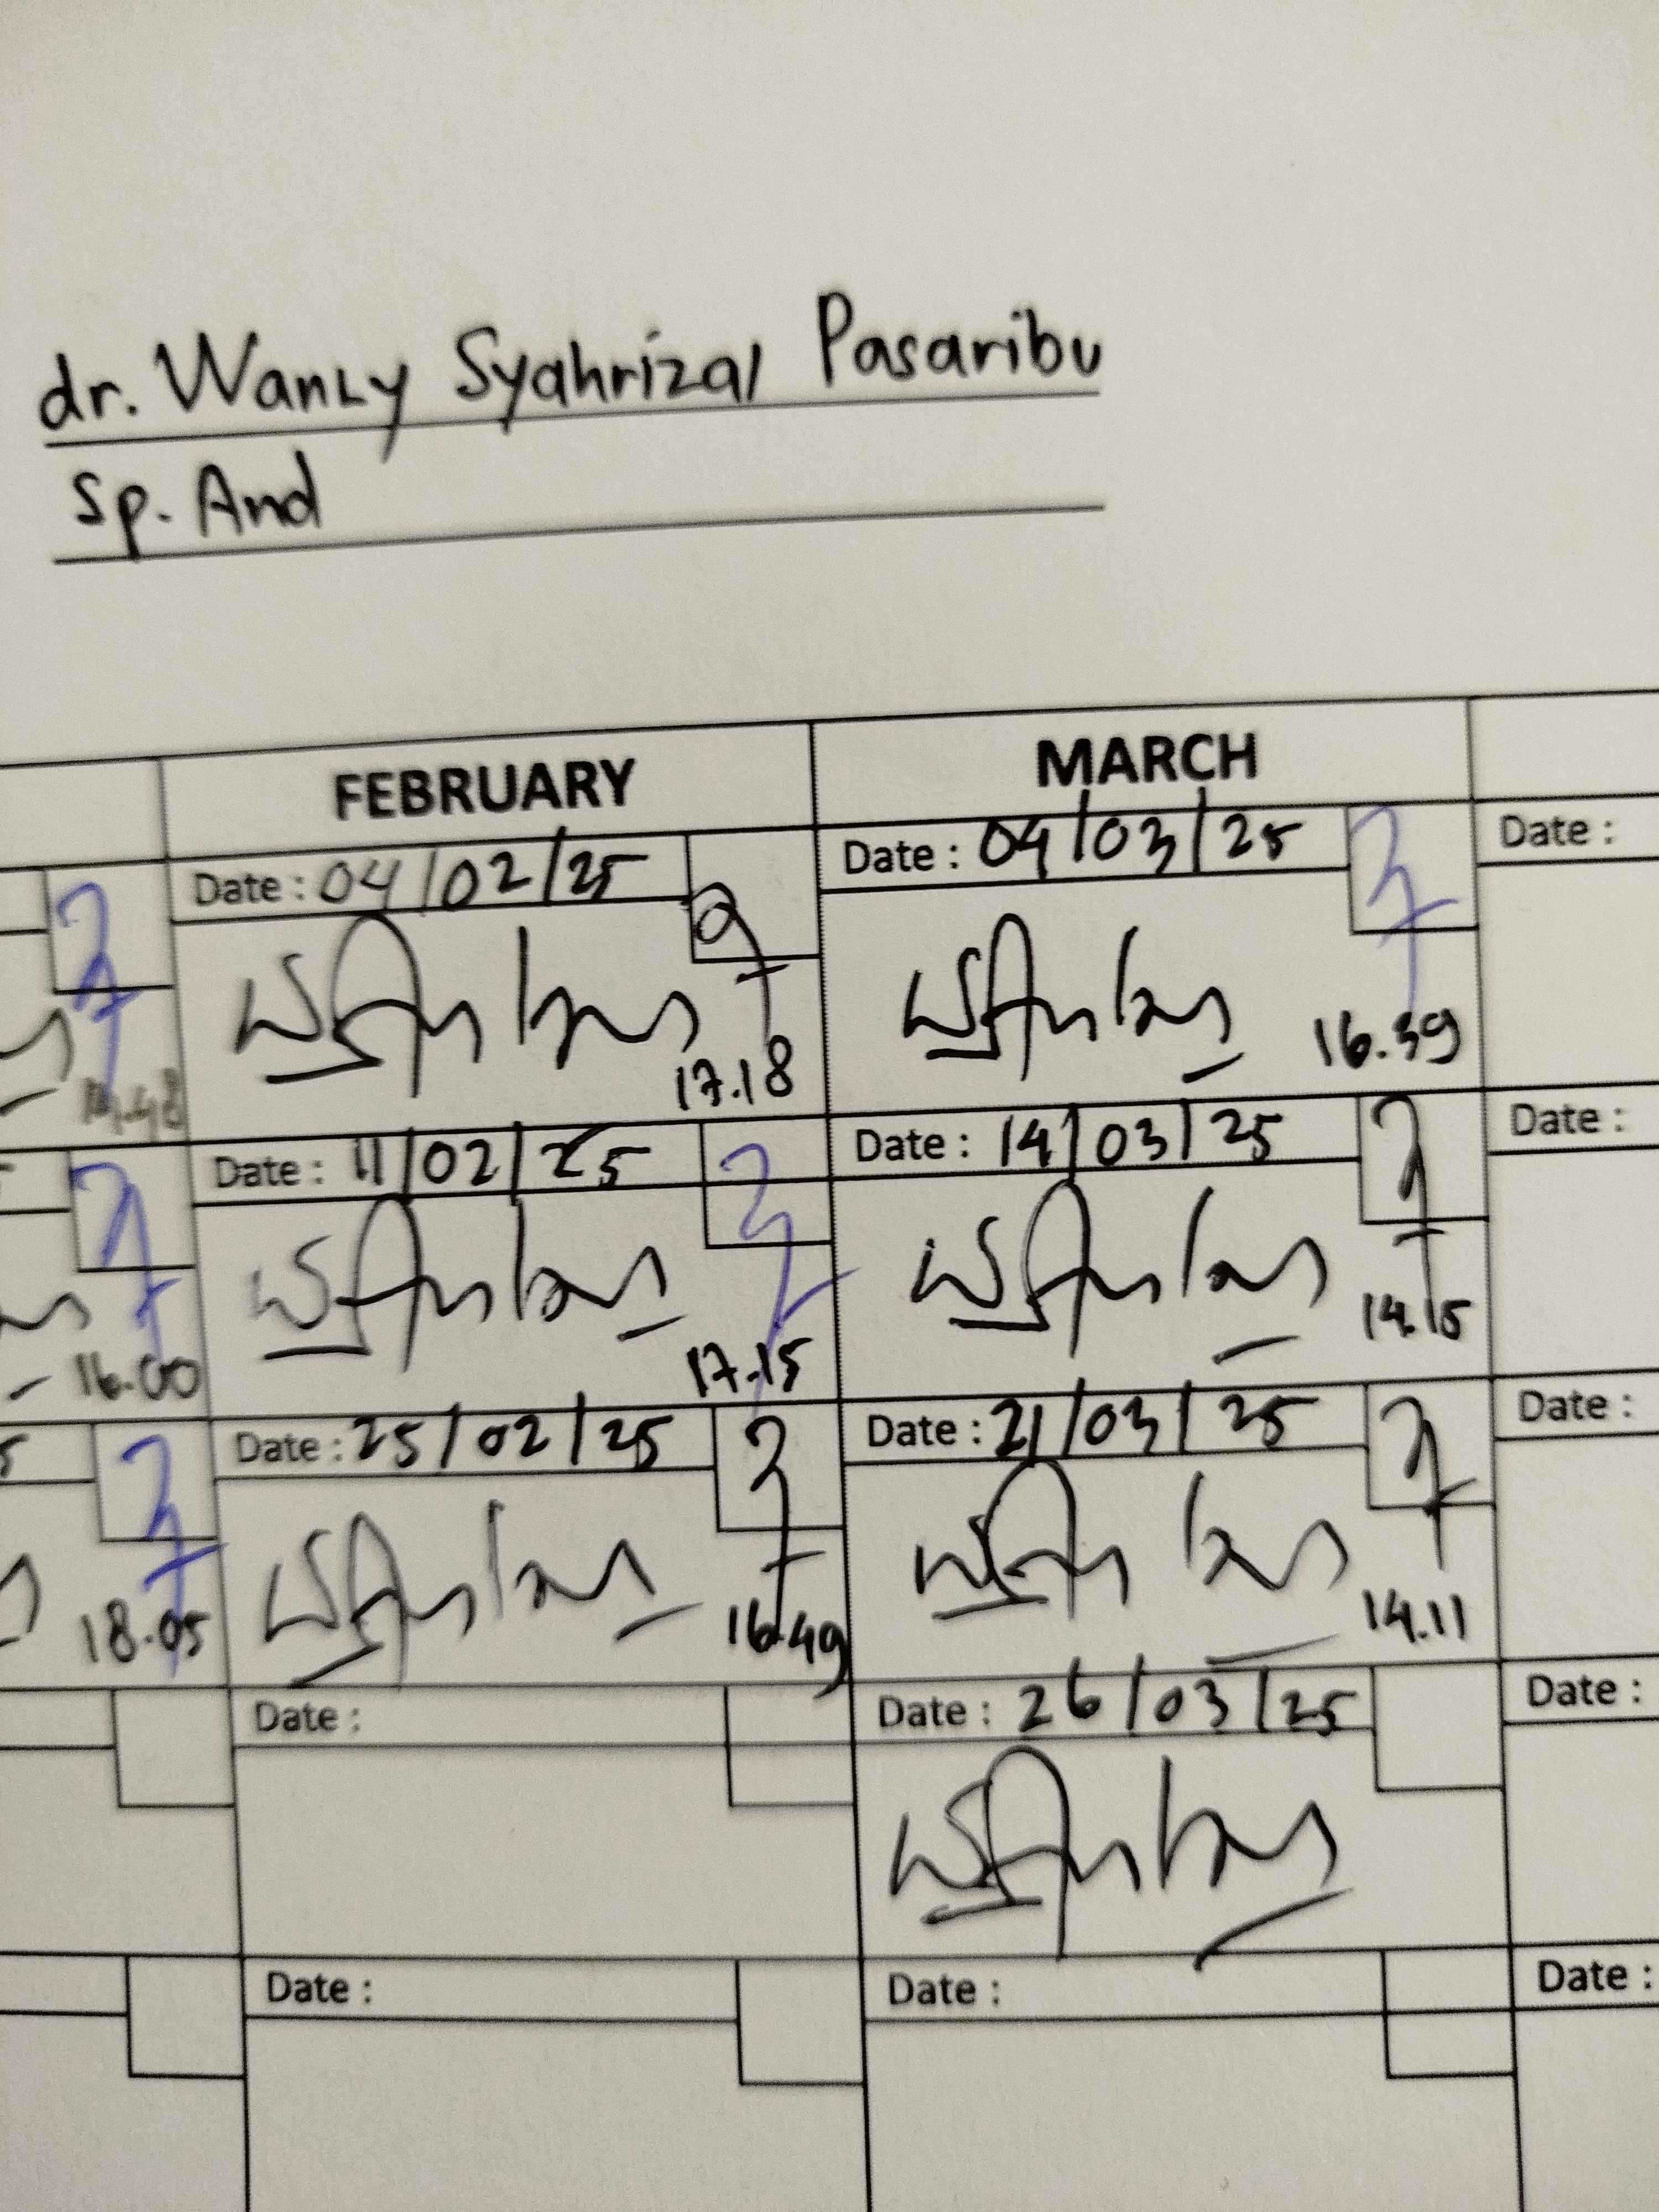 dr. Wanly Syahrizal Pasaribu
Sp. And
FEBRUARY MARCH
Date : 04/02/25 Date : 04/03/25 Date :
17.18 16.39
Date : 11/02/25 Date : 14/03/25 Date :
16.00 17.15 14.15
Date : 25/02/25 Date : 21/03/25 Date :
18.05 16.49 14.11
Date : Date : 26/03/25 Date :
Date : Date : Date :